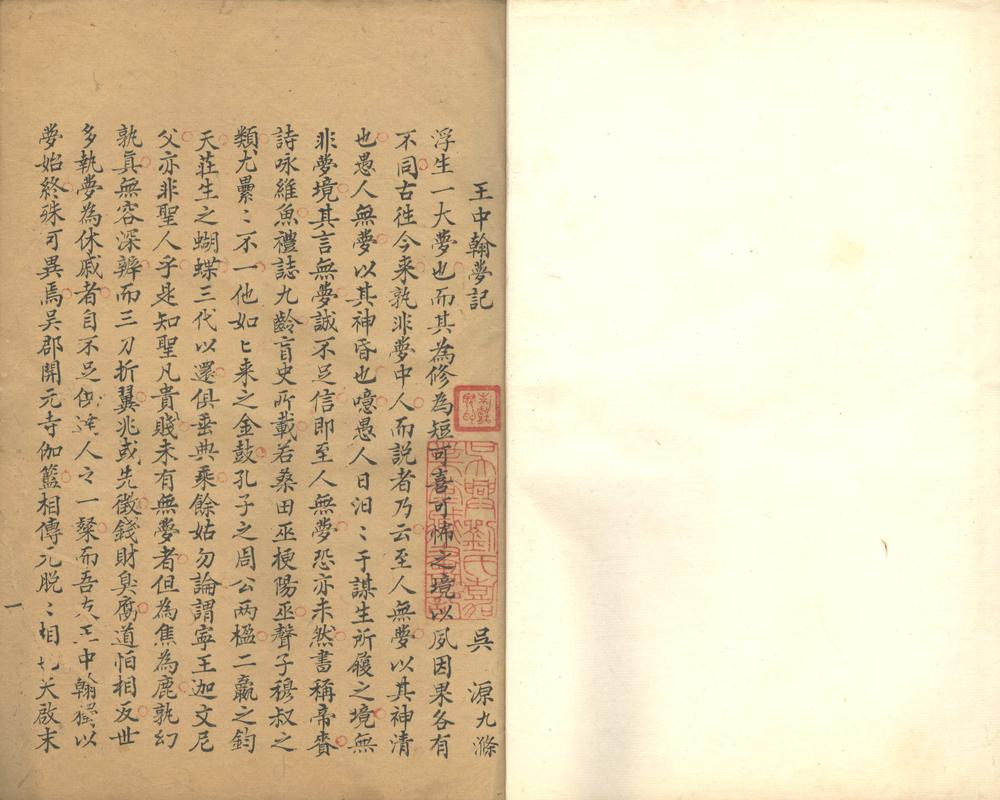 王中翰夢記
吳源九滌
浮生一大夢也而其為修為短可喜可怖之境以夙因果各有
不同古徃今来孰非夢中人而説者乃云至人無夢以其神清
也愚人無夢以其神昏也噫愚人日汨〻于謀生所履之境無
非夢境其言無夢誠不足信即至人無夢恐亦未然書稱帝賚
詩咏維魚禮誌九齡盲史所載若桑田巫梗陽巫聲子穆叔之
類尤纍〻不一他如匕来之金鼓孔子之周公两楹二贏之鈞
天莊生之蝴蝶三代以還俱垂典乘餘姑勿論謂寜王迦文尼
父亦非聖人乎是知聖凡貴賤未有無夢者但為焦為鹿孰幻
孰真無容深辨而三刀折翼兆或先徵錢財臭腐道怕相反世
多執夢為休戚者自不足達人之一粲而吾友王中翰獨以
夢始終殊可異焉吳郡開元寺伽籃相傳元脱〻相啟末
一